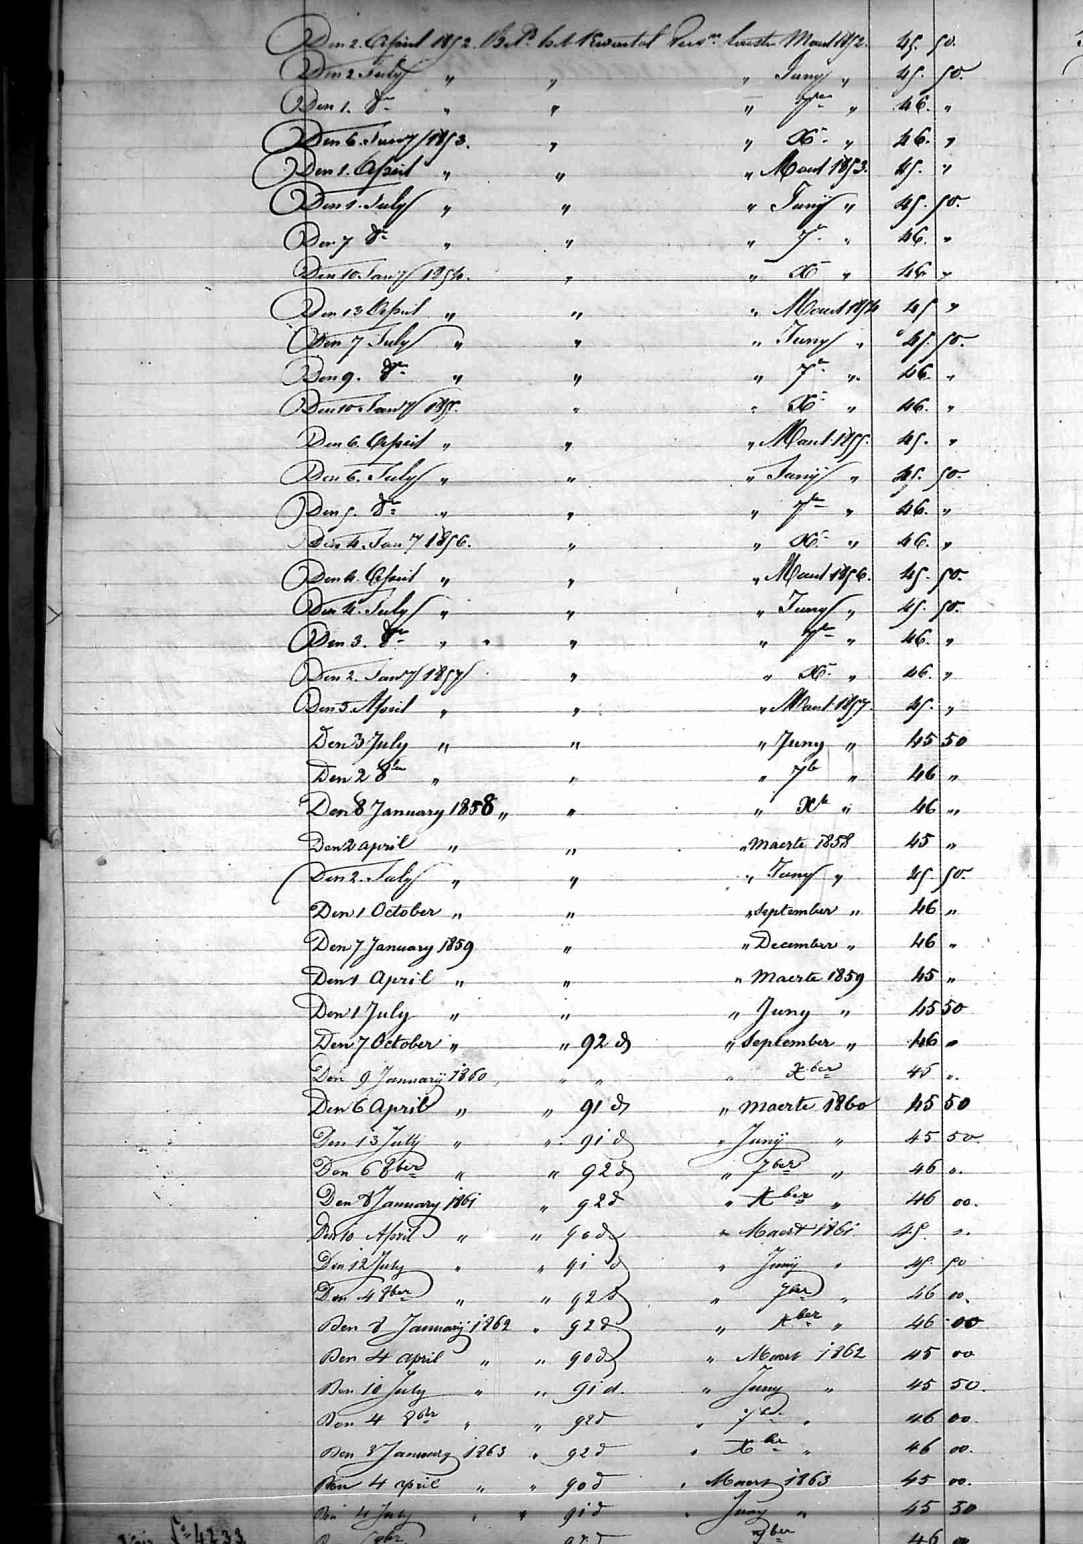 Den 2. April 1852. Bet. het Kwartal Pensn. tweeden Maart 1852. 45. 50.
Den 2 July " " " Juny " 45. 50.
Den 1. 8er " " " 7er " 46. "
Den 6. Jany 1853. " " Xr " 46. "
Den 1. April " " " Maart 1853. 45. "
Den 1. July " " " Juny " 45. 50.
Den 7 8r " " " 7r " 46. "
Den 10. Jany 1854. " " Xr " 46 "
Den 13 April " " " Maart 1854 45 "
Den 7 July " " " Juny " 45. 50.
Den 9. 8er " " " 7r " 46. "
Den 10 Jany 1855. " " Xr " 46. "
Den 6. April " " " Maart 1855. 45. "
Den 6. July " " " Juny " 45. 50.
Den 5. 8r " " " 7er " 46. "
Den 4. Jany 1856. " " Xr " 46. "
Den 4. April " " " Maart 1856. 45. 50.
Den 4. July " " " Juny " 45. 50.
Den 3. 8er " " " " 7er " 46. "
Den 2. Jany 1857 " " Xr " 46. "
Den 3 April " " " Maart 1857. 45. "
Den 3 July " " " Juny " 45 50
Den 2 8er " " " 7b " 46 "
Den 8 January 1858 " " " Xr " 46 "
Den 2 april " " " Maerte 1858 45 "
Den 2. July " " " Juny " 45 50.
Den 1 October " " " September " 46 "
Den 7 January 1859 " " December " 46 "
Den 1 April " " " Maerte 1859 45 "
Den 1 July " " " Juny " 45 50
Den 7 October " " 92 d " September " 46 "
Den 9 January 1860 " " " Xber 45 "
Den 6 April " " 91 d " Maerte 1860 45 50
Den 13 July " " 91 d " Juny " 45 50.
Den 6 8ber " " 92 d " 7ber " 46 "
Den 8 January 1861 " 92 d " Xber " 46 00.
Den 10 April " " 90 d " Maert 1861 45. "
Den 12 July " " 91 d " Juny " 45. 50
Den 4 8ber " " 92 d " 7ber " 46 00.
Den 8 January 1862 " 92 d " Xber " 46 00
Den 4 april " " 90 d " Maert 1862 45 00
Den 10 July " " 91 d. " Juny " 45 50.
Den 4 8ber " " 92 d " 7br. " 46 00.
Den 8 January 1863 " 92 d " Xbr " 46 00.
Den 4 april " " 90 d " Maert 1863 45 00.
Den 4 July " " 91 d " Juny " 45 50
8br 7ber 46 00
No 4233